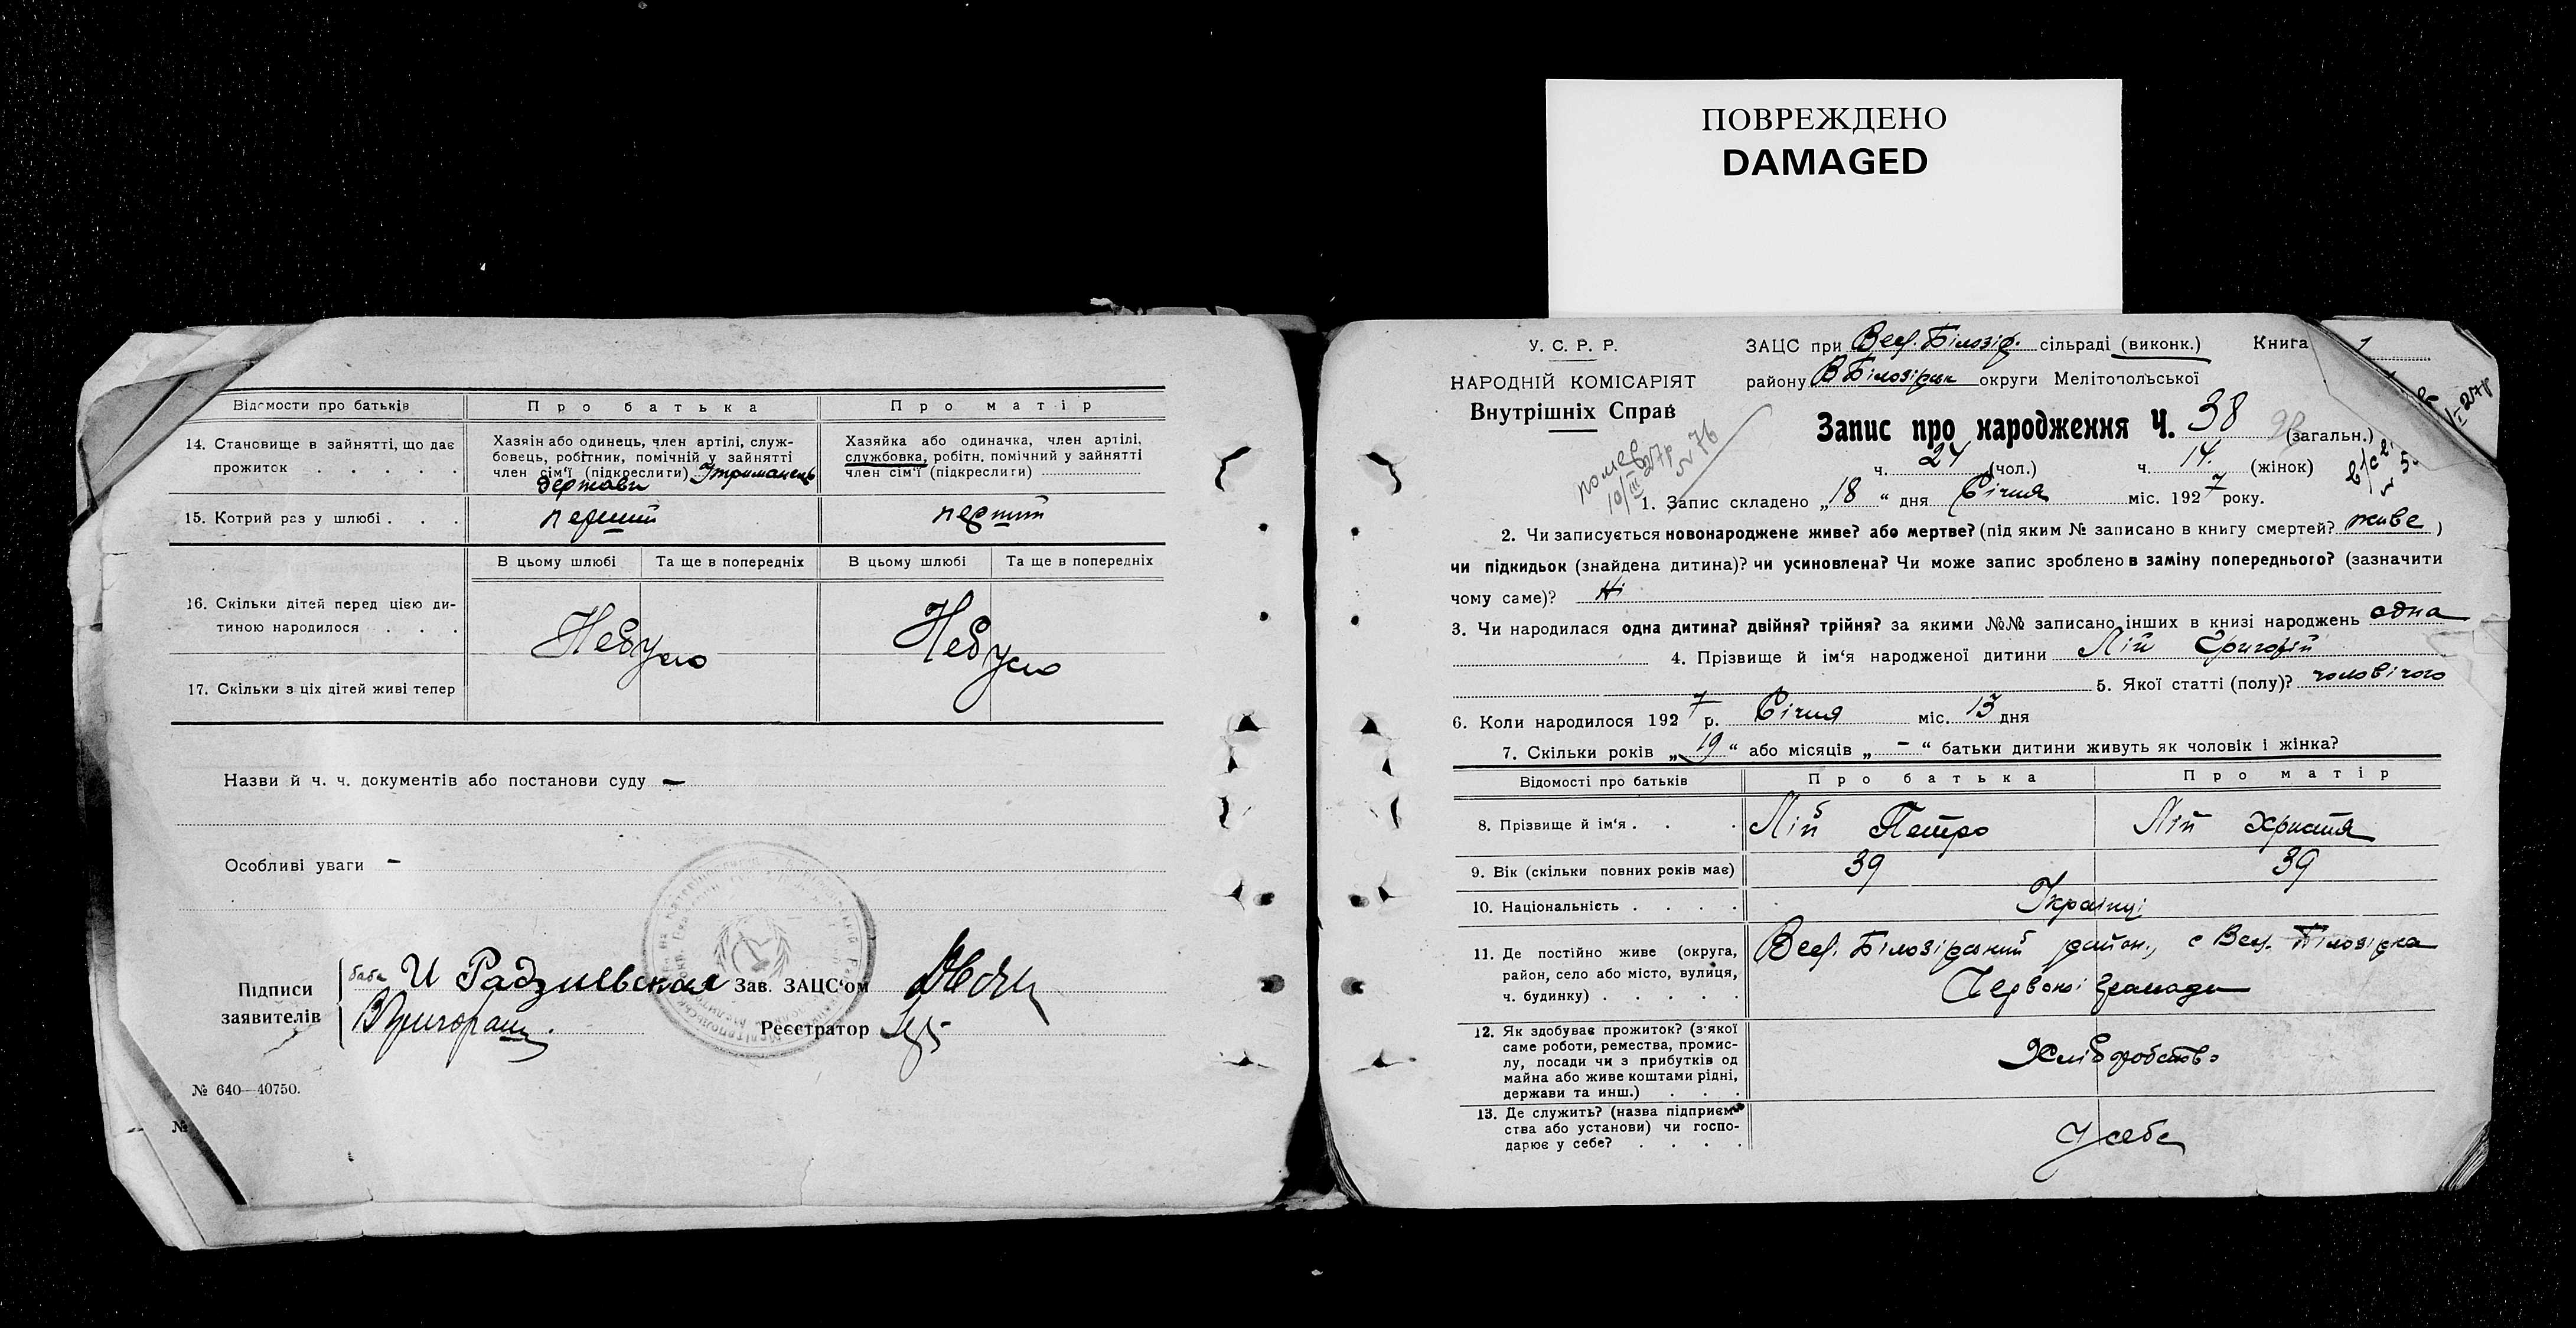 ПОВРЕЖДЕНО
DAMAGED
Відомости про батьків
Про батька
Про матір
14. Становище в зайнятті, що дає
прожиток . . . . .
Хазяін або одинець, член артілі, служ-
бовець, робітник, помічний у зайнятті
член сім'ї (підкреслити) Утриманець
держави
Хазяйка або одиначка, член артілі,
службовка, робітн. помічний у зайнятті
член сім'ї (підкреслити)
15. Котрий раз у шлюбі . . .
перший
перший
В цьому шлюбі
Та ще в попередніх
В цьому шлюбі
Та ще в попередніх
16. Скільки дітей перед цією ди-
тиною народилося . . .
Небуло
Небуло
17. Скільки з ціх дітей живі тепер
Назви й ч. ч. документів або постанови суду —
Особливі уваги —
Підписи
заявителів
баба И Радзиевская
Вригораш.
Зав. ЗАЦС'ом
Реєстратор
№ 640—40750.
№
У. С. Р. Р.
НАРОДНІЙ КОМІСАРІЯТ
Внутрішніх Справ
ЗАЦС при Вел. Білозір. сільраді (виконк.) Книга 1
району В Білозірськ округи Мелітопольської
Запис про народження Ч. 38 (загальн.)
ч. 24 (чол.) ч. 14. (жінок)
помер
10/III 27р
№ 76
1. Запис складено „18“ дня Січня міс. 1927 року.
2. Чи записується новонароджене живе? або мертве? (під яким № записано в книгу смертей? живе )
чи підкидьок (знайдена дитина)? чи усиновлена? Чи може запис зроблено в заміну попереднього? (зазначити
чому саме)? Ні
3. Чи народилася одна дитина? двійня? трійня? за якими №№ записано інших в книзі народжень одна
4. Прізвище й ім'я народженої дитини Лій Григорій
5. Якої статті (полу)? чоловічого
6. Коли народилося 1927 р. Січня міс. 13 дня
7. Скільки років „19“ або місяців „-“ батьки дитини живуть як чоловік і жінка?
Відомості про батьків
Про батька
Про матір
8. Прізвище й ім'я . . .
Лій Петро
Лій Христя
9. Вік (скільки повних років має)
39
39
10. Національність . . . .
Українці
11. Де постійно живе (округа,
район, село або місто, вулиця,
ч. будинку) . . . . .
Вел. Білозірський район., с Вел. Білозірка
Червоної Громади
12. Як здобуває прожиток? (з'якої
саме роботи, ремества, промис-
лу, посади чи з прибутків од
майна або живе коштами рідні,
держави та инш.) . . .
Хліборобство
13. Де служить? (назва підприєм-
ства або установи) чи госпо-
дарює у себе? . . . .
У себе